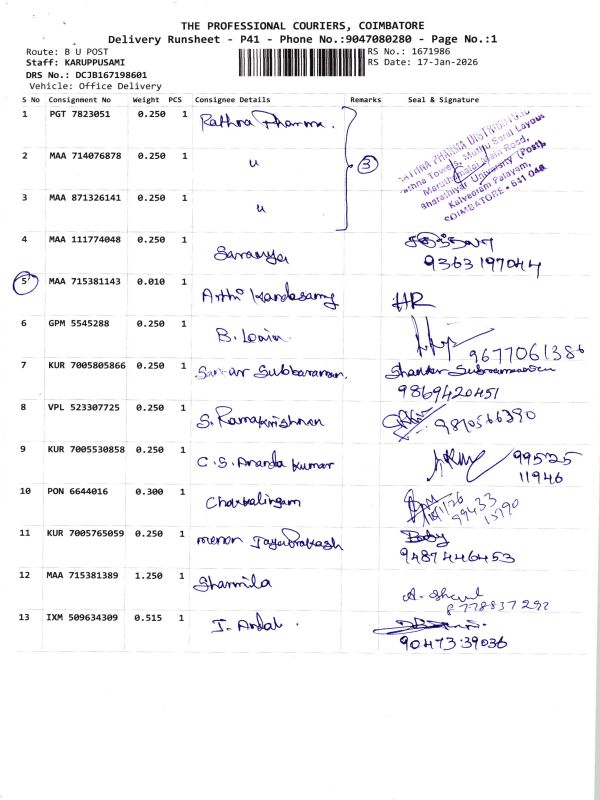 THE PROFESSIONAL COURIERS, COIMBATORE
Delivery Runsheet - P41 - Phone No.:9047080280 - Page No.:1
Route: B U POST RS No.: 1671986
Staff: KARUPPUSAMI RS Date: 17-Jan-2026
DRS No.: DCJB167198601
Vehicle: Office Delivery
S No Consignment No Weight PCS Consignee Details Remarks Seal & Signature
1 PGT 7823051 0.250 1 Rathna Pharma.
2 MAA 714076878 0.250 1 " 3
3 MAA 871326141 0.250 1 "
RATHNA PHARMA DISTRIBUTORS
Rathna Towers, Muthu Saral Layout
Maruthamalai Main Road,
Bharathiyar University (Post),
Kalveeram Palayam,
COIMBATORE - 641 046
4 MAA 111774048 0.250 1 Saranya
9363197044
5 MAA 715381143 0.010 1 Arthi Kandasamy HR
6 GPM 5545288 0.250 1 B. 9677061386
7 KUR 7005805866 0.250 1 Subbaraman. Shanker
9869420451
8 VPL 523307725 0.250 1 S. Ramakrishnan 9810566390
9 KUR 7005530858 0.250 1 C.S. Ananda Kumar 99525
11946
10 PON 6644016 0.300 1 99433
13790
11 KUR 7005765059 0.250 1 menon Jayaprakash Baby
9487446453
12 MAA 715381389 1.250 1 Sharmila
8778837292
13 IXM 509634309 0.515 1 J. Andal.
90473 39036